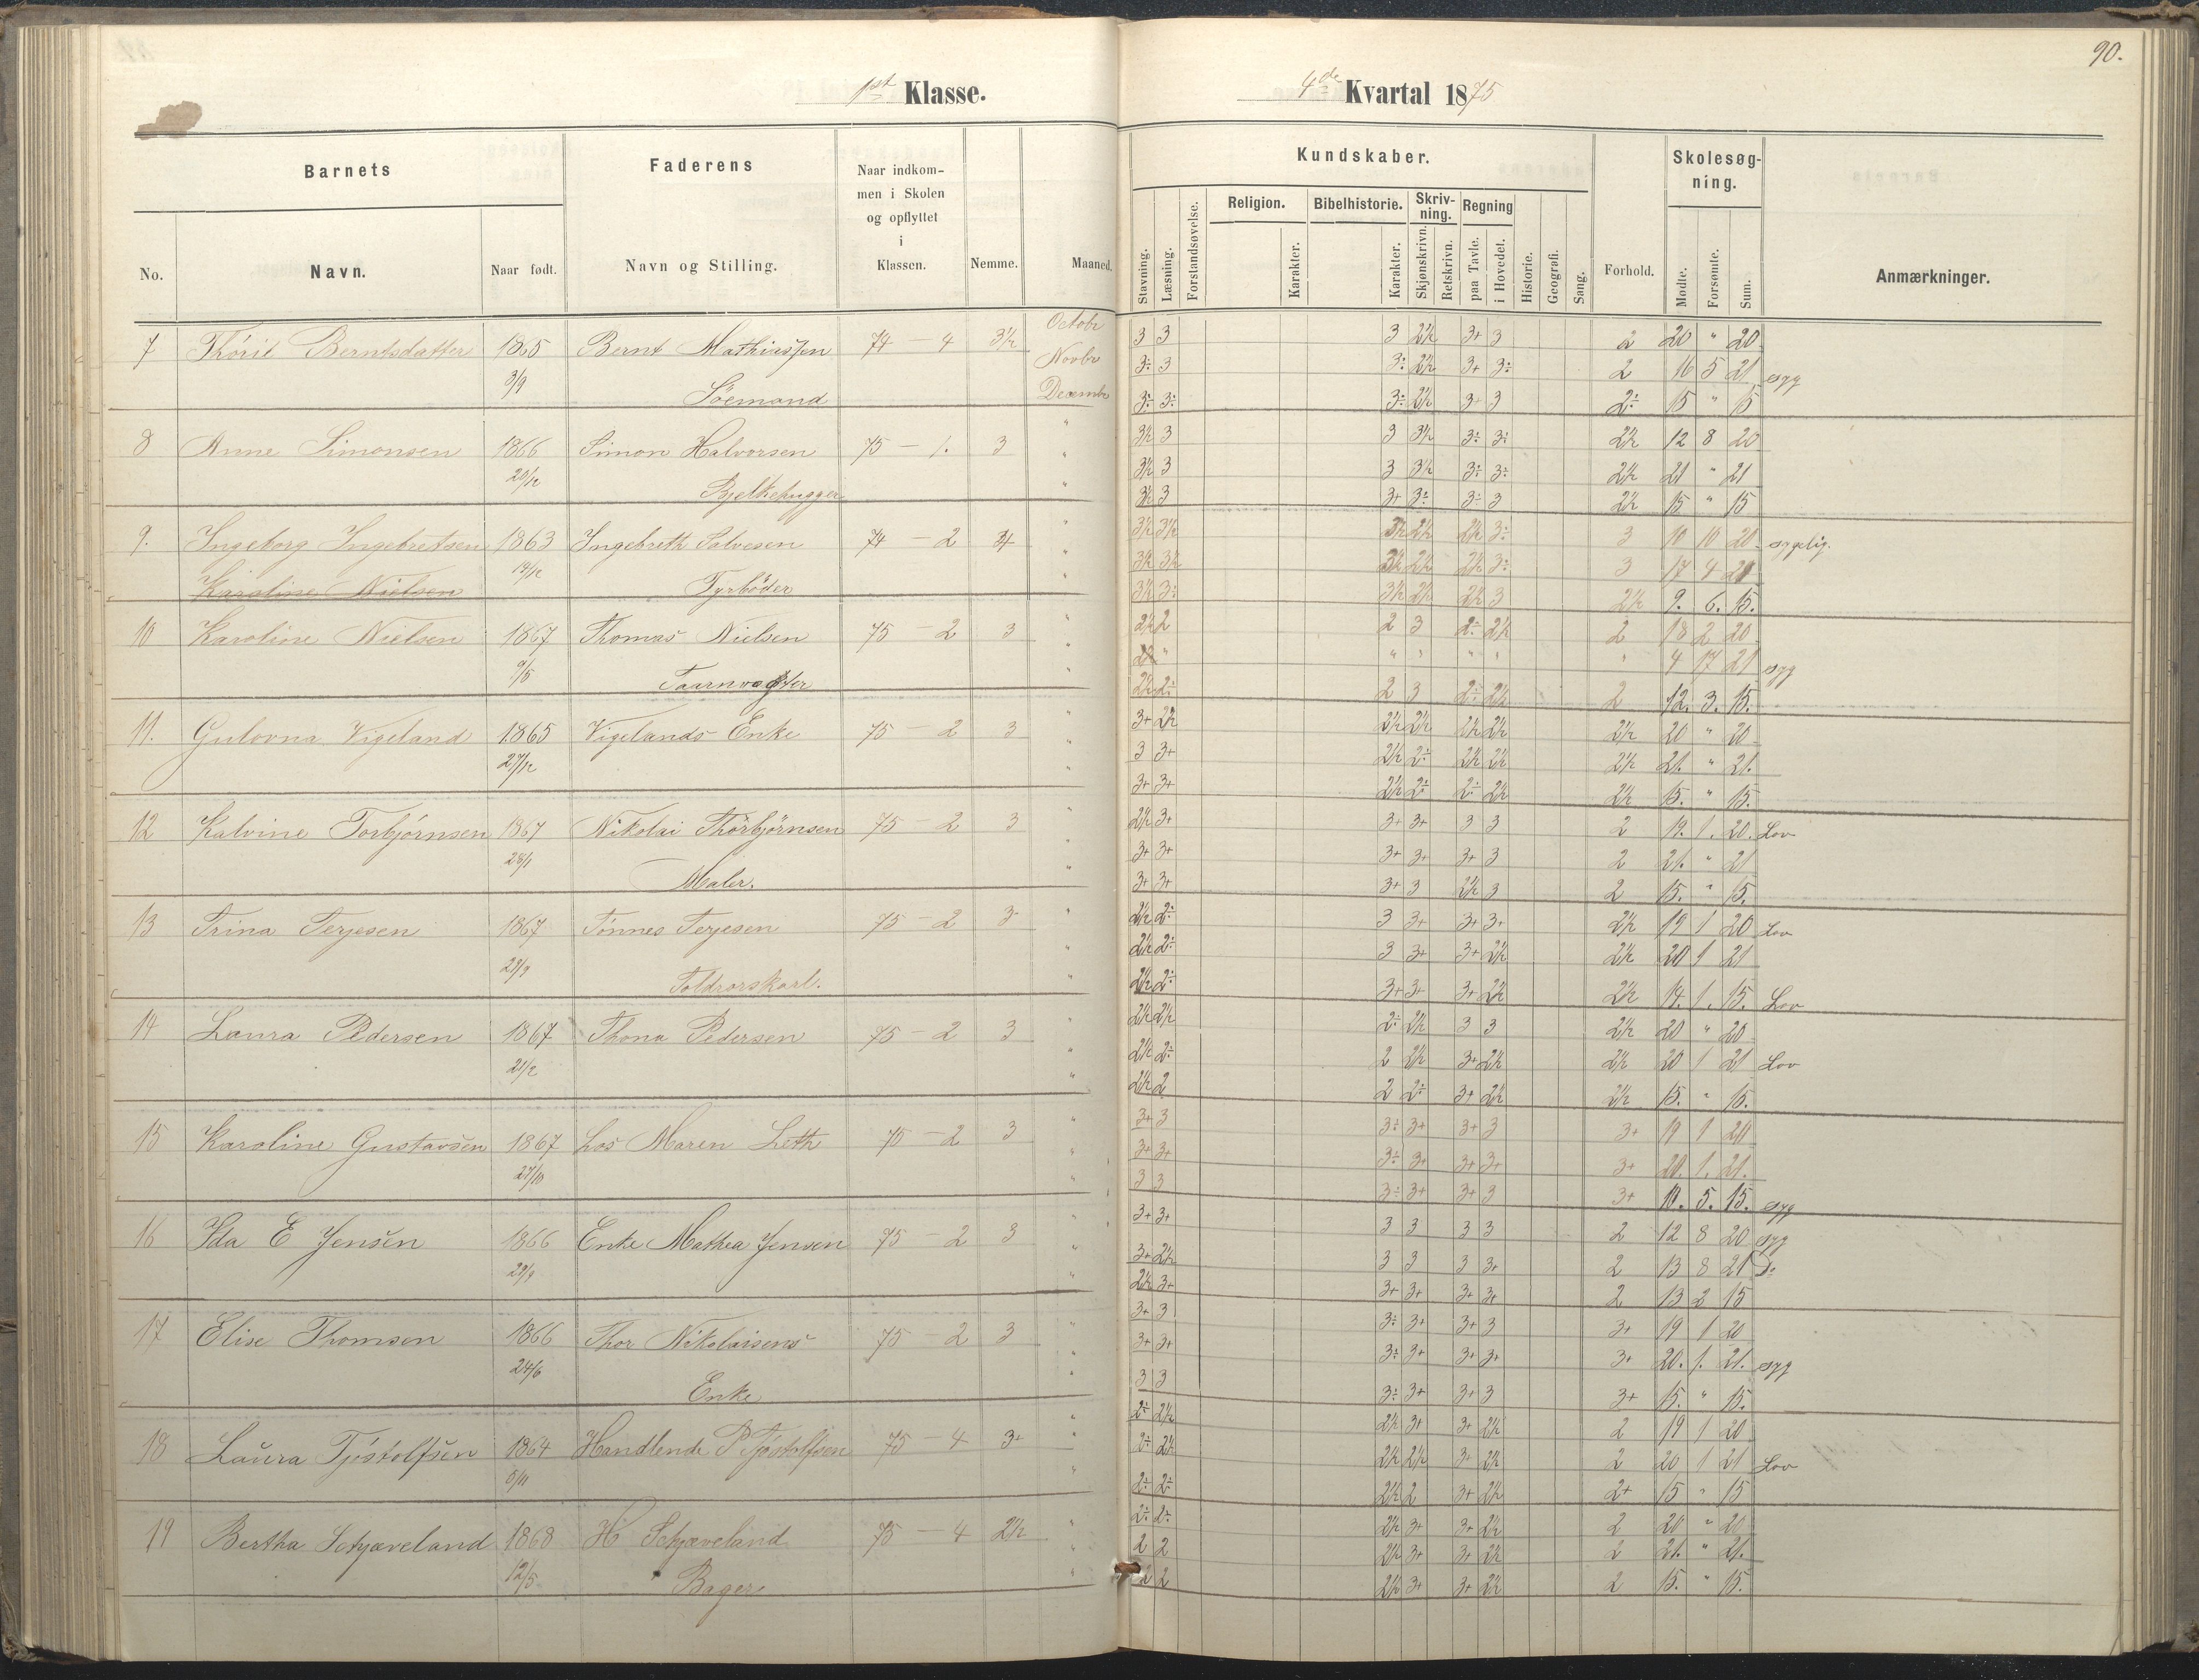 90.
1st Klasse.
4de Kvartal 1875
Barnets
Faderens
Naar indkom-
men i Skolen
og opflyttet
i
Klassen.
Nemme.
Maaned.
No.
Navn.
Naar født.
Navn og Stilling.
Kundskaber.
Skolesøg-
ning.
Stavning.
Læsning.
Forstandsøvelse.
Religion.
Karakter.
Bibelhistorie.
Karakter.
Skriv-
ning.
Skjønskrivn.
Retskrivn.
Regning
paa Tavle.
i Hovedet.
Historie.
Geografi.
Sang.
Forhold.
Mødte.
Forsømte.
Sum.
Anmærkninger.
7 Thóril Berntsdatter 1865 Bernt Mathiassen 74 - 4 3½ Octobr 3 3 3 2½ 3+ 3 2 20 " 20
3/9 Novbr 3÷ 3 3÷ 2½ 3+ 3÷ 2 16 5 21 syg
Söemand Decembr 3÷ 3÷ 3÷ 2½ 3+ 3 2÷ 15 " 15
8 Anne Simonsen 1866 Simon Halvorsen 75 - 1. 3 " 3½ 3 3 3½ 3÷ 3÷ 2½ 12 8 20
20/12 " 3½ 3 3 3½ 3÷ 3÷ 2½ 21 " 21
Bjelkehugger " 3½ 3 3+ 3÷ 3÷ 3 2½ 15 " 15
9. Ingeborg Ingebretsen 1863 Ingebreth Salvesen 74 - 2 " 3½ 3½ 3½ 2½ 2½ 3÷ 3 10 10 20 sygelig.
19/12 " 3½ 3½ 3½ 2½ 2½ 3÷ 3 17 4 21
Karoline Nielsen Fyrböder " 3½ 3÷ 3½ 2½ 2½ 3 2½ 9. 6. 15.
10 Karoline Nielsen 1867 Thomas Nielsen 75 - 2 3 " 2½ 2 2 3 2÷ 2½ 2 18 2 20
9/5 " " " " " " " 4 17 21 syg
Taarnvogter " 2½ 2÷ 2 3 2÷ 2½ 2 12. 3. 15.
11. Gulovna Vigeland 1865 Vigelands Enke 75 - 2 3 " 3+ 2½ 2½ 2½ 2½ 2½ 2½ 20 " 20
27/12 " 3 3+ 2½ 2÷ 2½ 2½ 2½ 21. " 21.
" 3+ 3+ 2½ 2÷ 2÷ 2½ 2½ 15. " 15.
12 Kalvine Torbjörnsen 1867 Nikolai Thörbjörnsen 75 - 2 3 " 2½ 3+ 3+ 3+ 3 3 2 19. 1. 20. Lov
28/1 " 3+ 3+ 3+ 3+ 3+ 3 2 21. " 21
Maler. " 3+ 3+ 3+ 3 2½ 3 2 15. " 15.
13 Trina Terjesen 1867 Tönnes Terjesen 75 - 2 3 " 2½ 2÷ 3 3+ 3+ 3+ 2½ 19 1 20 Lov
28/9 " 2½ 2÷ 3 3+ 3+ 2½ 2½ 20 1 21
Toldrorskarl. " 2½ 2÷ 3+ 3+ 3+ 2½ 2½ 14. 1. 15. Lov
14 Laura Pedersen 1867 Thona Pedersen 75 - 2 3 " 2½ 2½ 2÷ 2½ 3 3 2½ 20 " 20
21/2 " 2½ 2÷ 2 2½ 3+ 2½ 2½ 20 1 21 Lov
" 2½ 2 2 2÷ 3+ 2½ 2½ 15. " 15.
15 Karoline Gustavsen 1867 hos Maren Leth 75 - 2 3 " 3+ 3 3÷ 3+ 3+ 3 3+ 19 1 20
27/10 " 3+ 3+ 3÷ 3+ 3+ 3+ 3+ 20. 1. 21.
" 3 3 3÷ 3+ 3+ 3 3+ 10. 5. 15. syg
16 Ida E Jensen 1866 Enke Mathea Jensen 75 - 2 3 " 3+ 3+ 3 3 3 3 2 12 8 20 syg
29/9 " 3+ 2½ 3 3 3 3+ 2 13 8 21 D:
" 2½ 3+ 3+ 3+ 3+ 3+ 2 13 2 15
17 Elise Thomsen 1866 Thor Nikolaisens 75 - 2 3 " 3+ 3 3÷ 3+ 3+ 3 3+ 19 1 20
24/6 " 3+ 3+ 3÷ 3+ 3+ 3+ 3+ 20. 1. 21. syg
Enke " 3 3 3÷ 3+ 3+ 3 3+ 15. " 15.
18 Laura Tjöstolfsen 1864 Handlende P Tjöstolfsen 75 - 4 3+ " 2÷ 2½ 2½ 3+ 3+ 2½ 2 19 1 20
5/11 " 2÷ 2½ 2½ 2½ 3+ 2½ 2 20 1 21 Lov
" 2÷ 2÷ 2½ 2 3+ 2½ 2+ 15 " 15
19 Bertha Schjæveland 1868 H Schjæveland 75 - 4 2½ " 2÷ 2÷ 2½ 3+ 3+ 2½ 2 20 " 20
12/5 " 2 2 2½ 3+ 3+ 2½ 2 21. " 21.
Bager " 2 2 2½ 3+ 3+ 2½ 2 15. " 15.